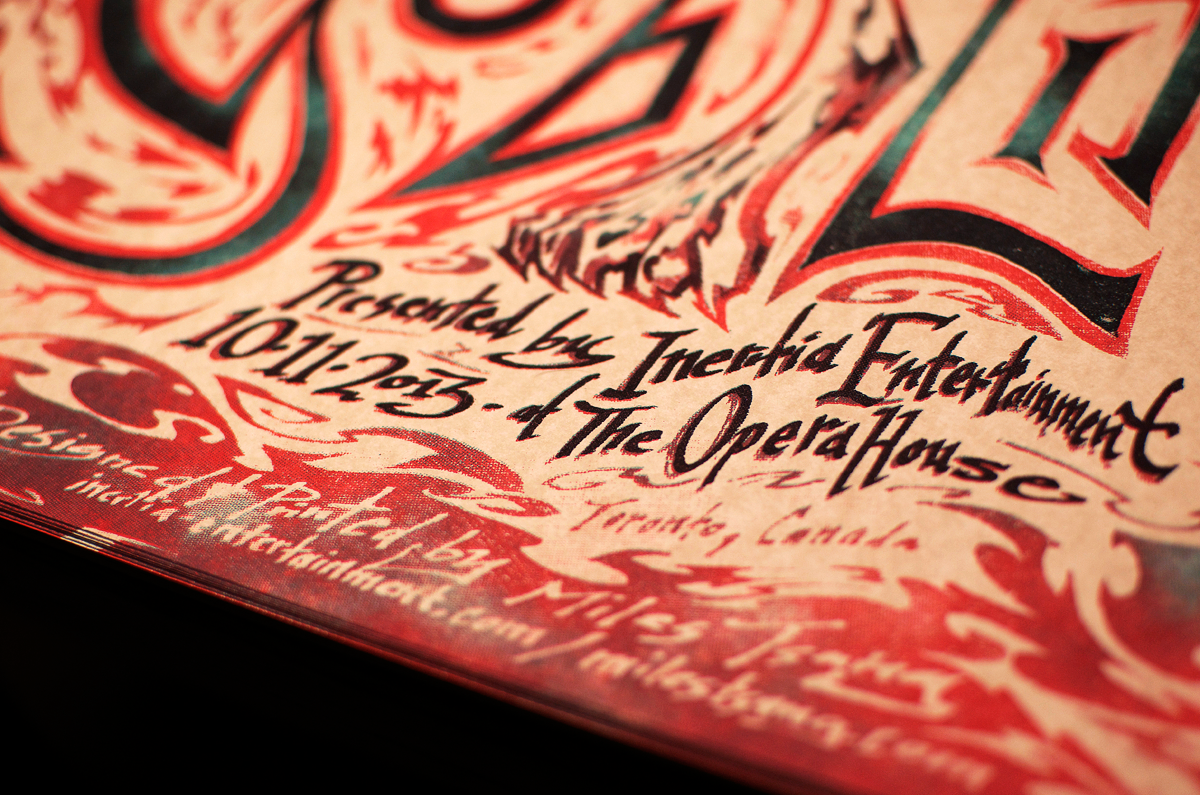 Presented by Inertia Entertainment
10·11·2013· at The Opera House
Toronto, Canada
Designed & Printed by Miles Tsang
inertia-entertainment.com / milestsang.com